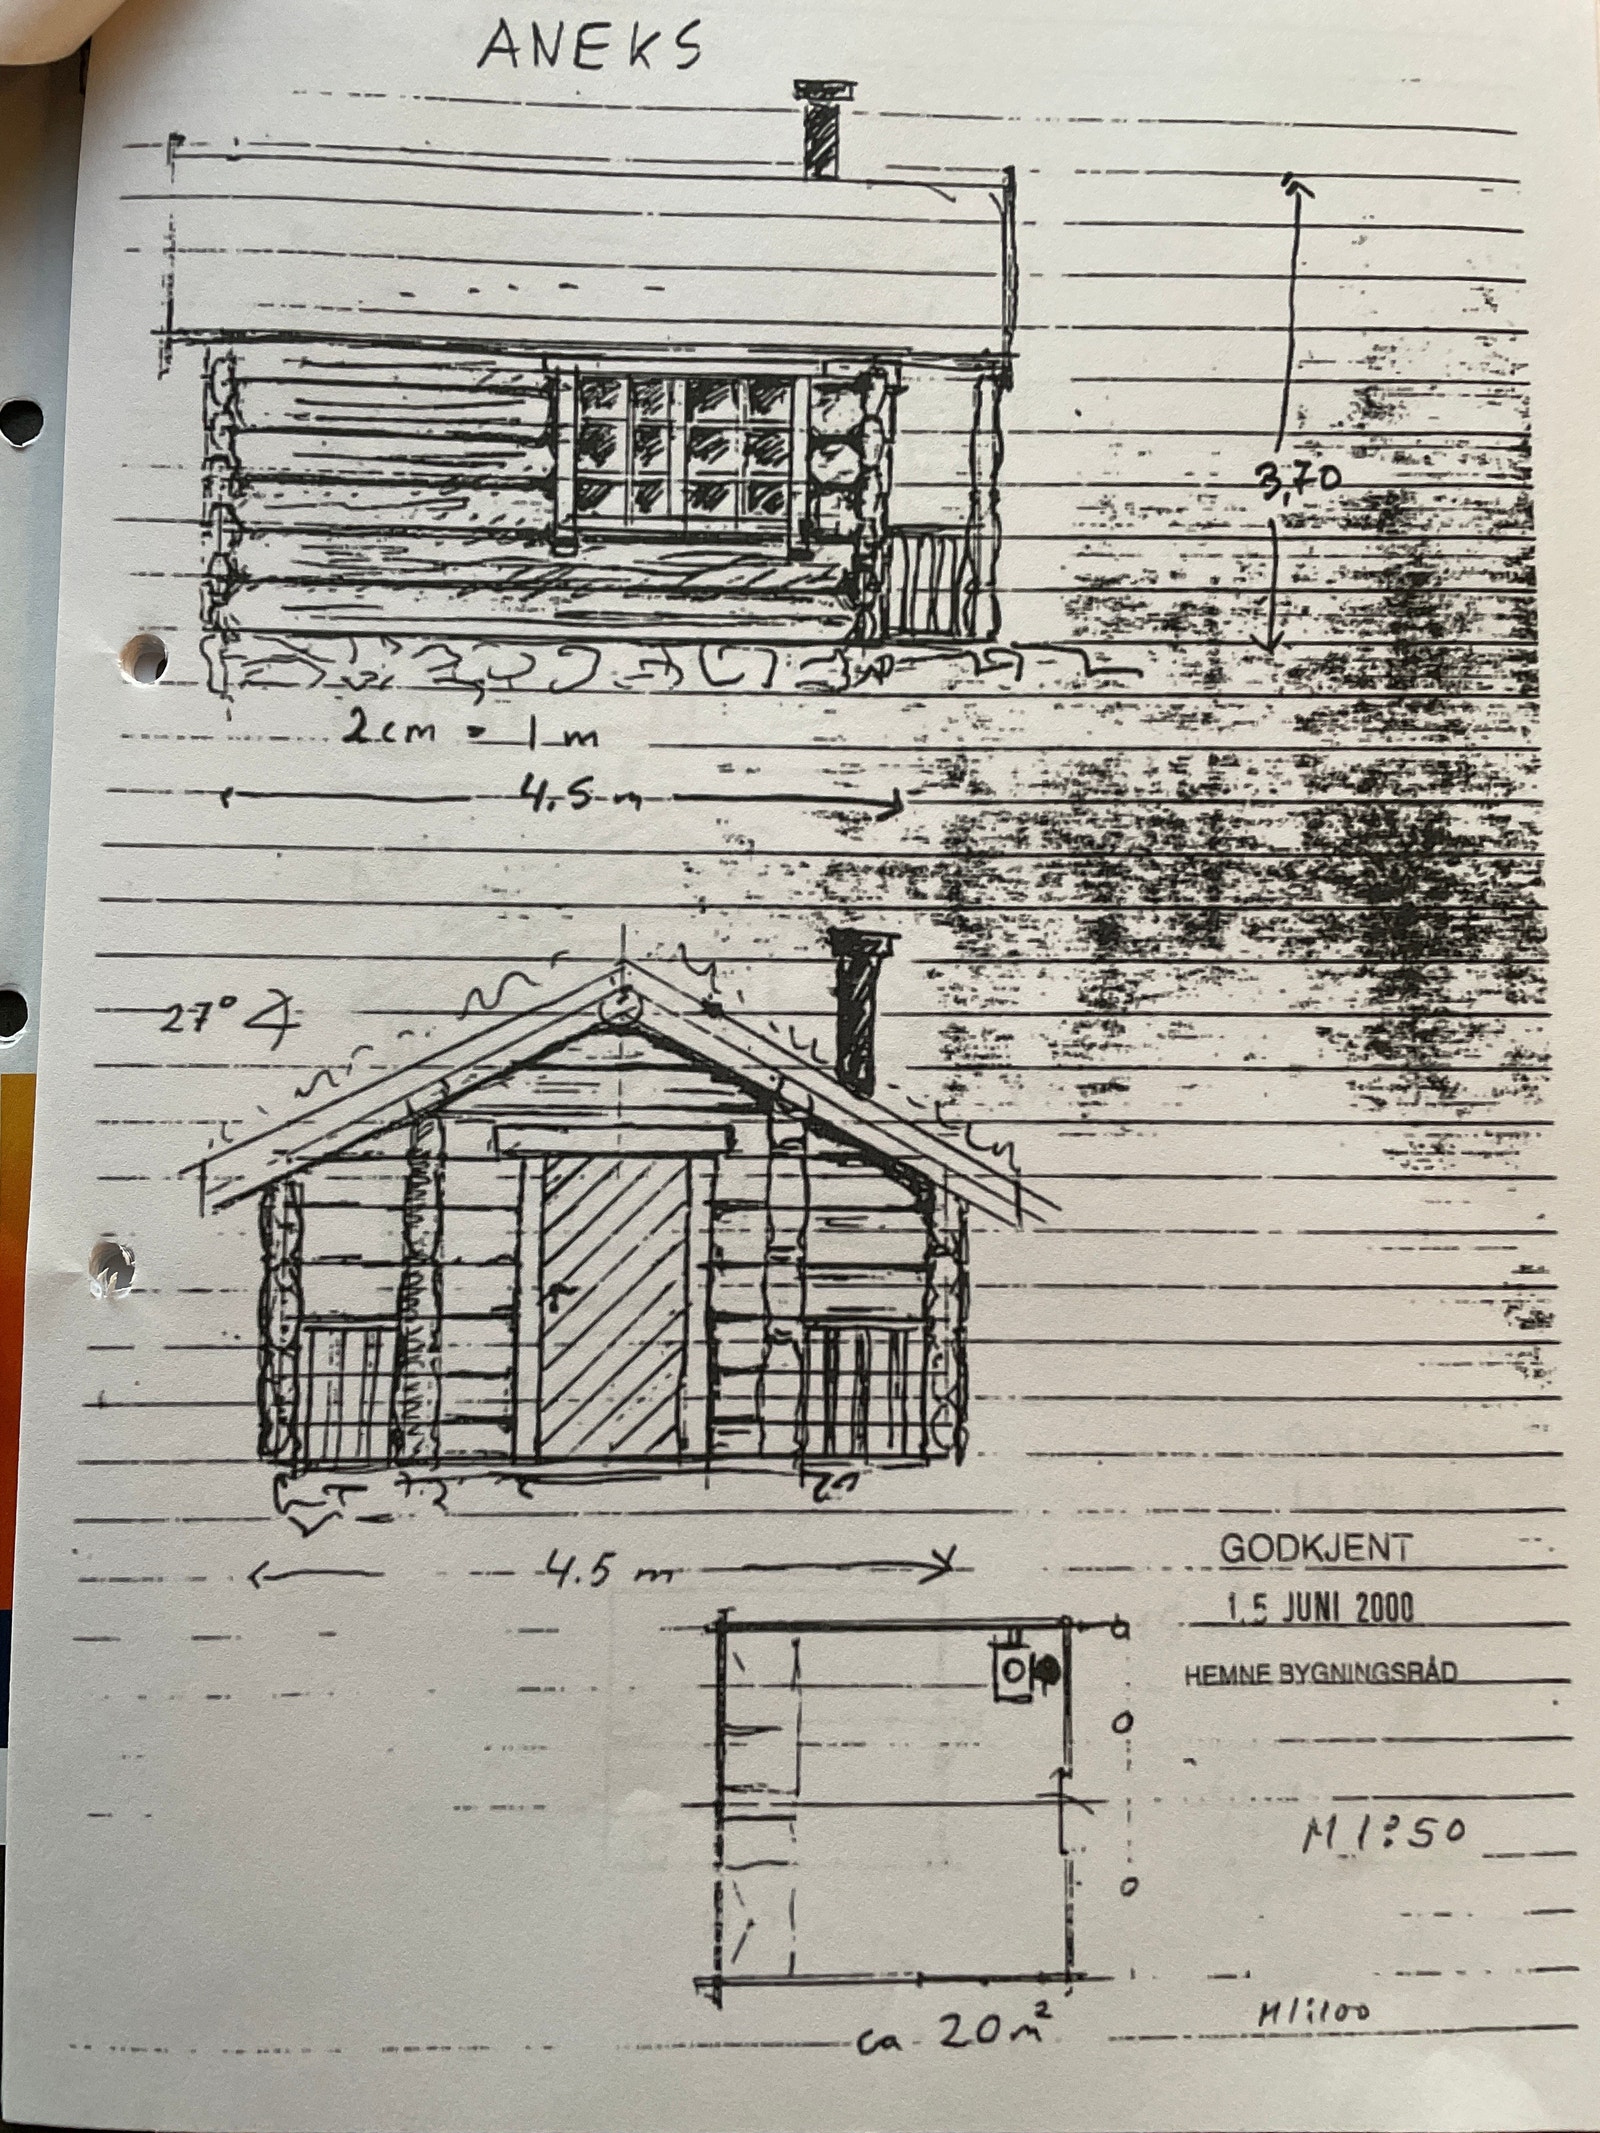 ANEKS
3,70
2 cm = 1 m
4.5 m
27°
4.5 m
GODKJENT
15 JUNI 2000
HEMNE BYGNINGSRÅD
M 1:50
M 1:100
ca 20 m²